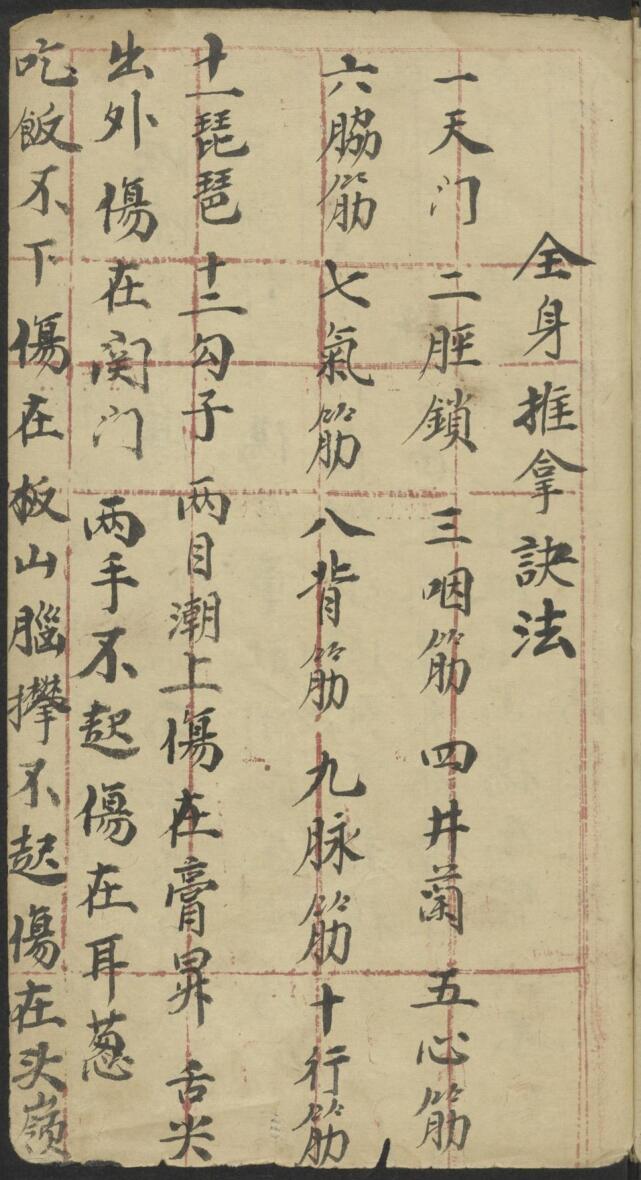 全身推拿訣法
一天门 二脛鎖 三咽筋 四井蘭 五心筋
六脇筋 七氣筋 八背筋 九脉筋 十行筋
十一琵琶 十二勾子 两目潮上傷在膏 舌尖
出外傷在関门 两手不起傷在耳葱
吃飯不下傷在板山腦攀不起傷在头嶺